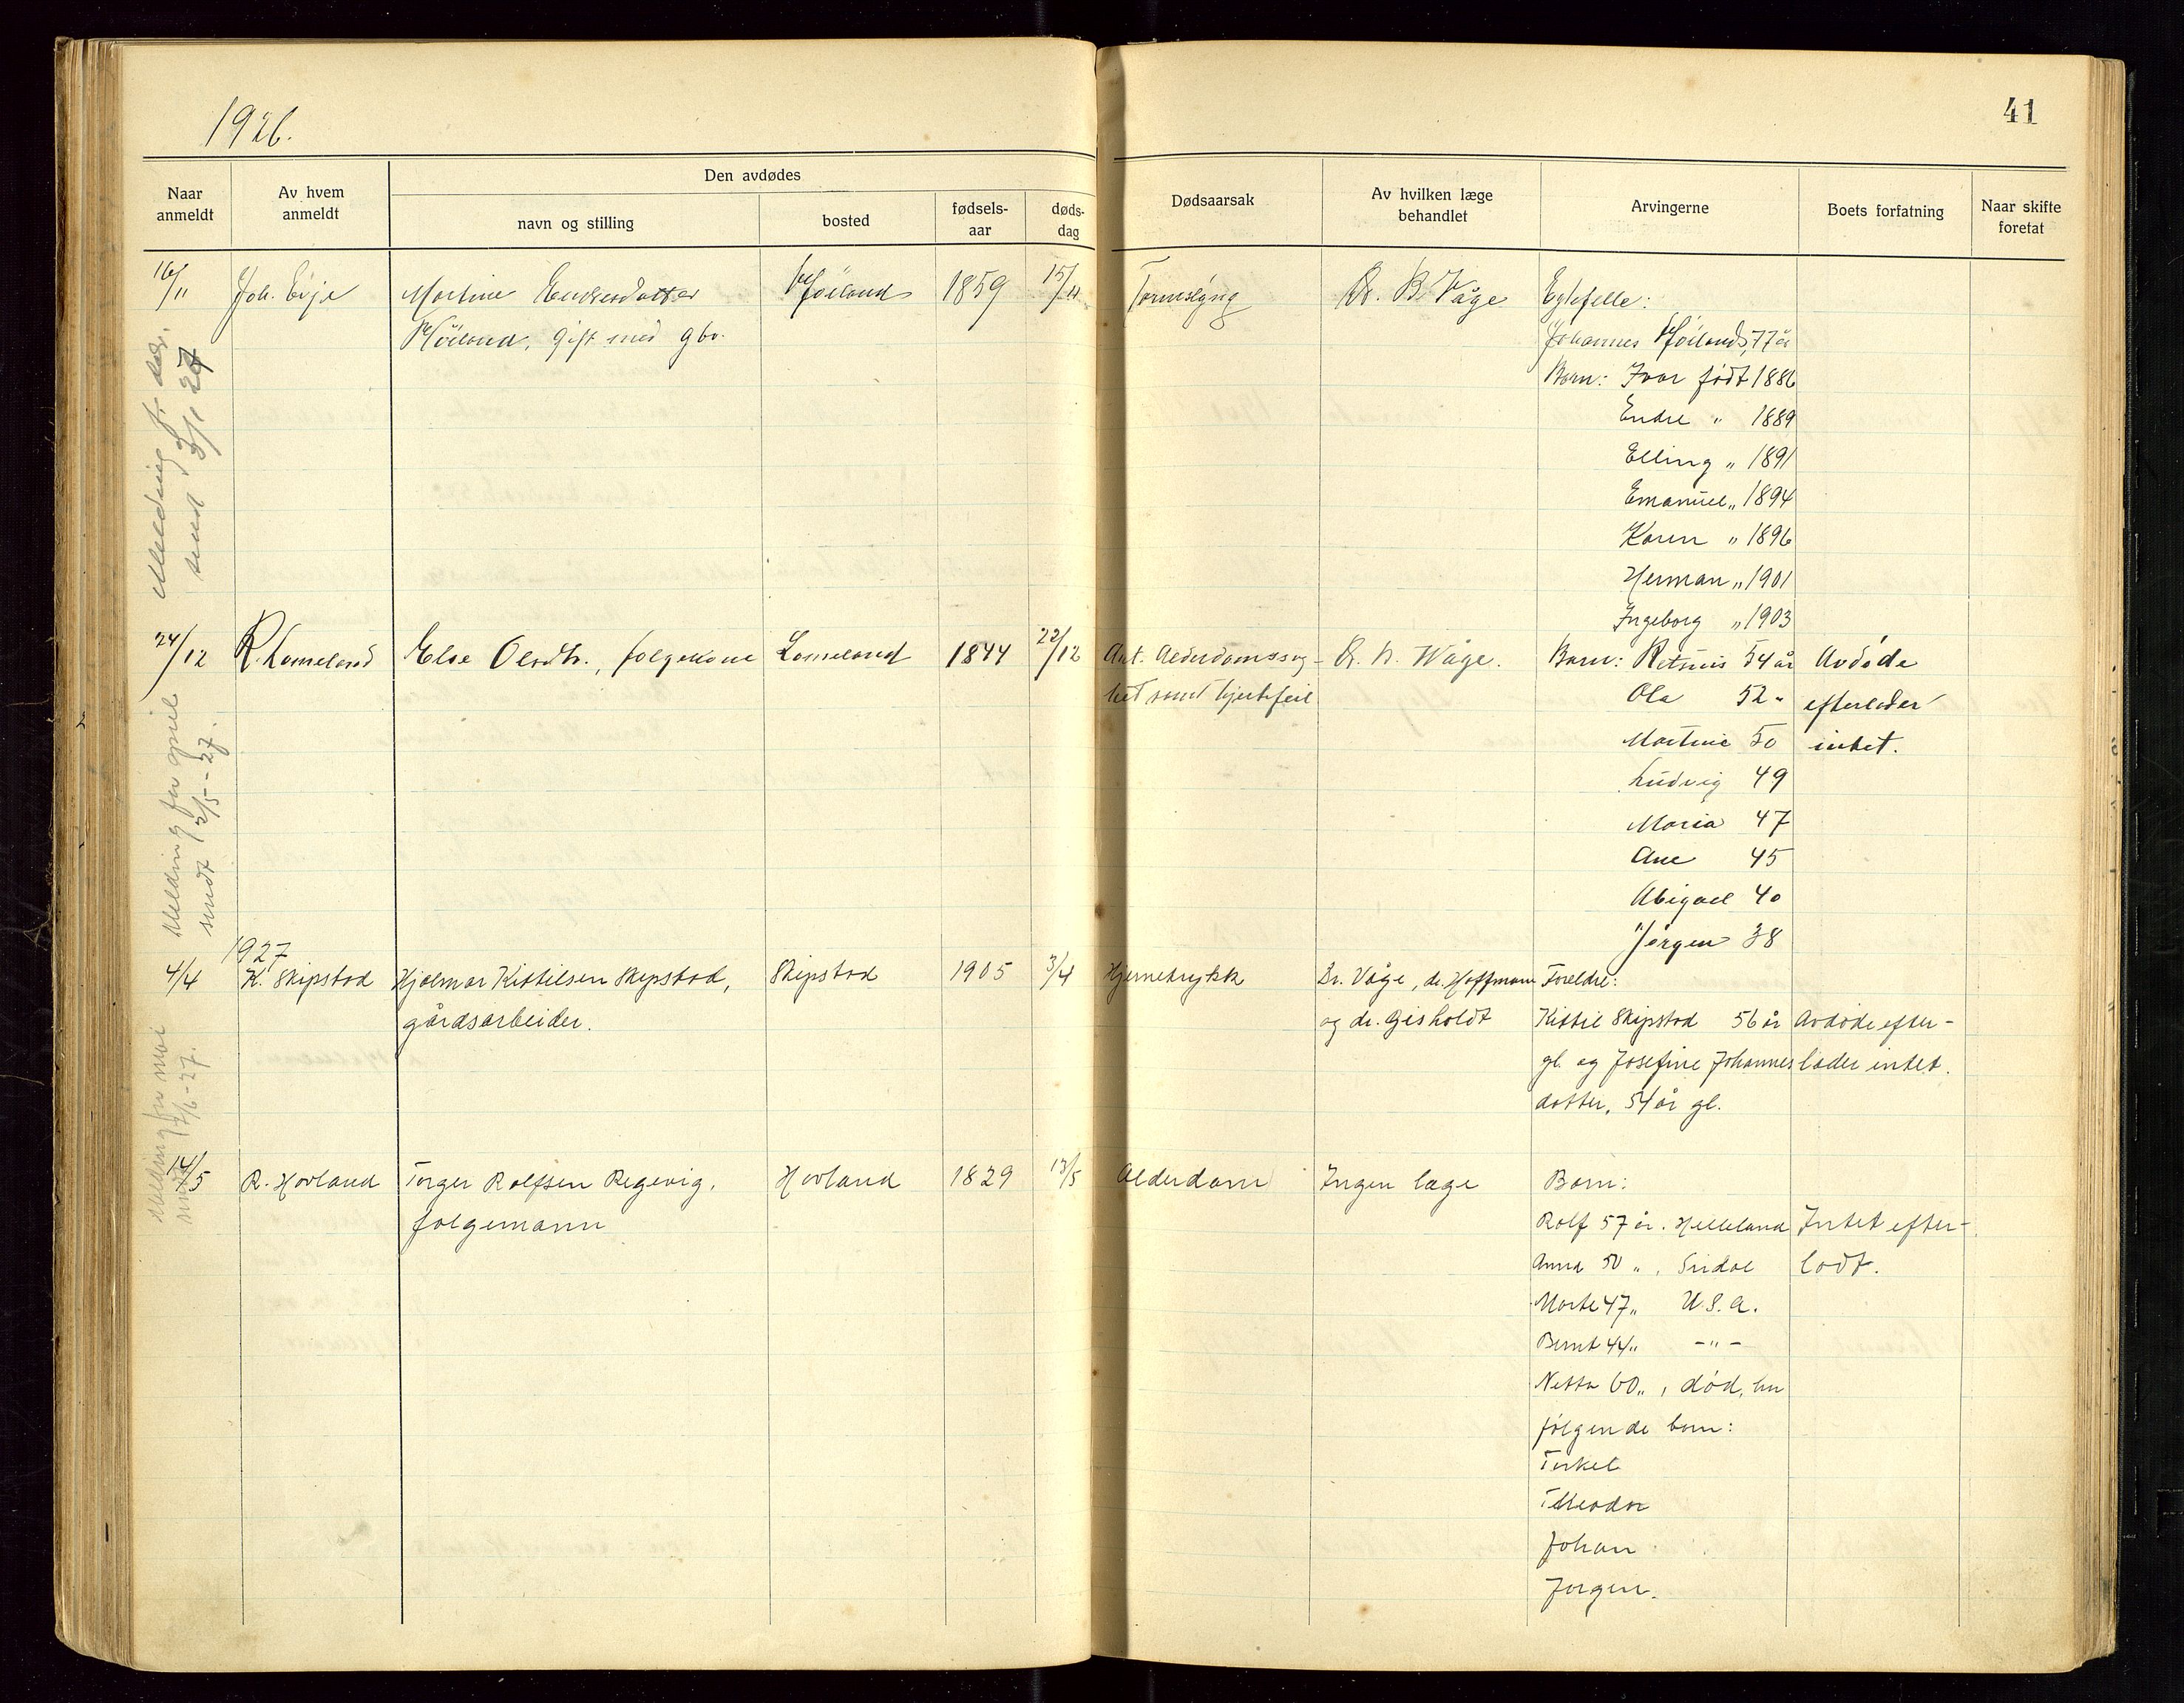 1926.
41
Naar anmeldt
Av hvem anmeldt
Den avdødes
navn og stilling
bosted
fødsels-aar
døds-dag
Dødsaarsak
Av hvilken læge behandlet
Arvingerne
Boets forfatning
Naar skifte foretat
16/11 Joh. Eije Martine Endresdatter Høiland 1859 15/11 Tarmslyng Dr. B. Våge Egtefelle:
Høiland, gift med gbr. Johannes Høiland, 77 år
Barn: Ivar født 1886
Endre " 1889
Elling " 1891
Emanuel " 1894
Karen " 1896
Herman " 1901
Ingeborg " 1903
Melding f. des.
send 3/1 27
24/12 R. Lomeland Else Olsdtr., folgekone Lomeland 1844 22/12 Ant. Alderdomssvag- Dr. N. Wåge. Barn: Retsius 54 år Avdøde
het samt hjertefeil Ola 52 " efterlader
Martine 50 intet.
Ludvig 49
Maria 47
Ane 45
Abigael 40
Jørgen 38
Melding for april
sendt 2/5-27.
1927
4/4 K. Skipstad Hjalmar Kittilsen Skipstad, Skipstad 1905 3/4 Hjernetrykk Dr. Våge, dr. Hoffmann Foreldre:
gårdsarbeider. og dr. Gisholdt Kittil Skipstad 56 år Avdøde efter-
gl. og Josefine Johannes lader intet.
datter, 54 år gl.
Melding for mai
7/6-27.
14/5 R. Hovland Torger Rolfsen Regevig, Hovland 1829 13/5 Alderdom Ingen læge Barn:
folgemann Rolf 57 år. Helleland Intet efter-
Anna 50 ", lodt.
Marte 47 " U.S.A.
Bernt 44 " -"-
Netta 60 ", død, hu
følgende barn:
Terkel
Theodor
Johan
Jørgen.